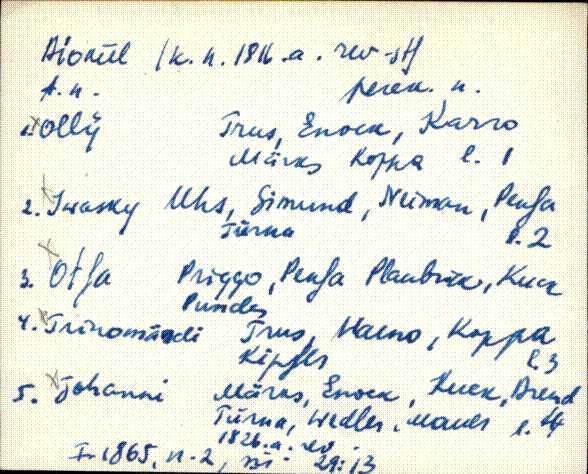 Aiorül /k. n. 1816.a. rev-st/
t.n. perek. n.
1. Olly Trus, Enock, Karro
Märks Koppa l. 1
2. Iwasky Uhs, Simund, Neiman, Penja
Türna l. 2
3. Otsa Priggo, Penja Plaubrük, Kuck
Pundes
4. Trinomändi Trus, Maeno, Koppa
Kipsls l. 3
5. Johanni Märks, Enock, Kuck, Brend
Türna, Wedler, Mauer l. 4
1826.a. rev.
I-1865, n. 2, 29:13